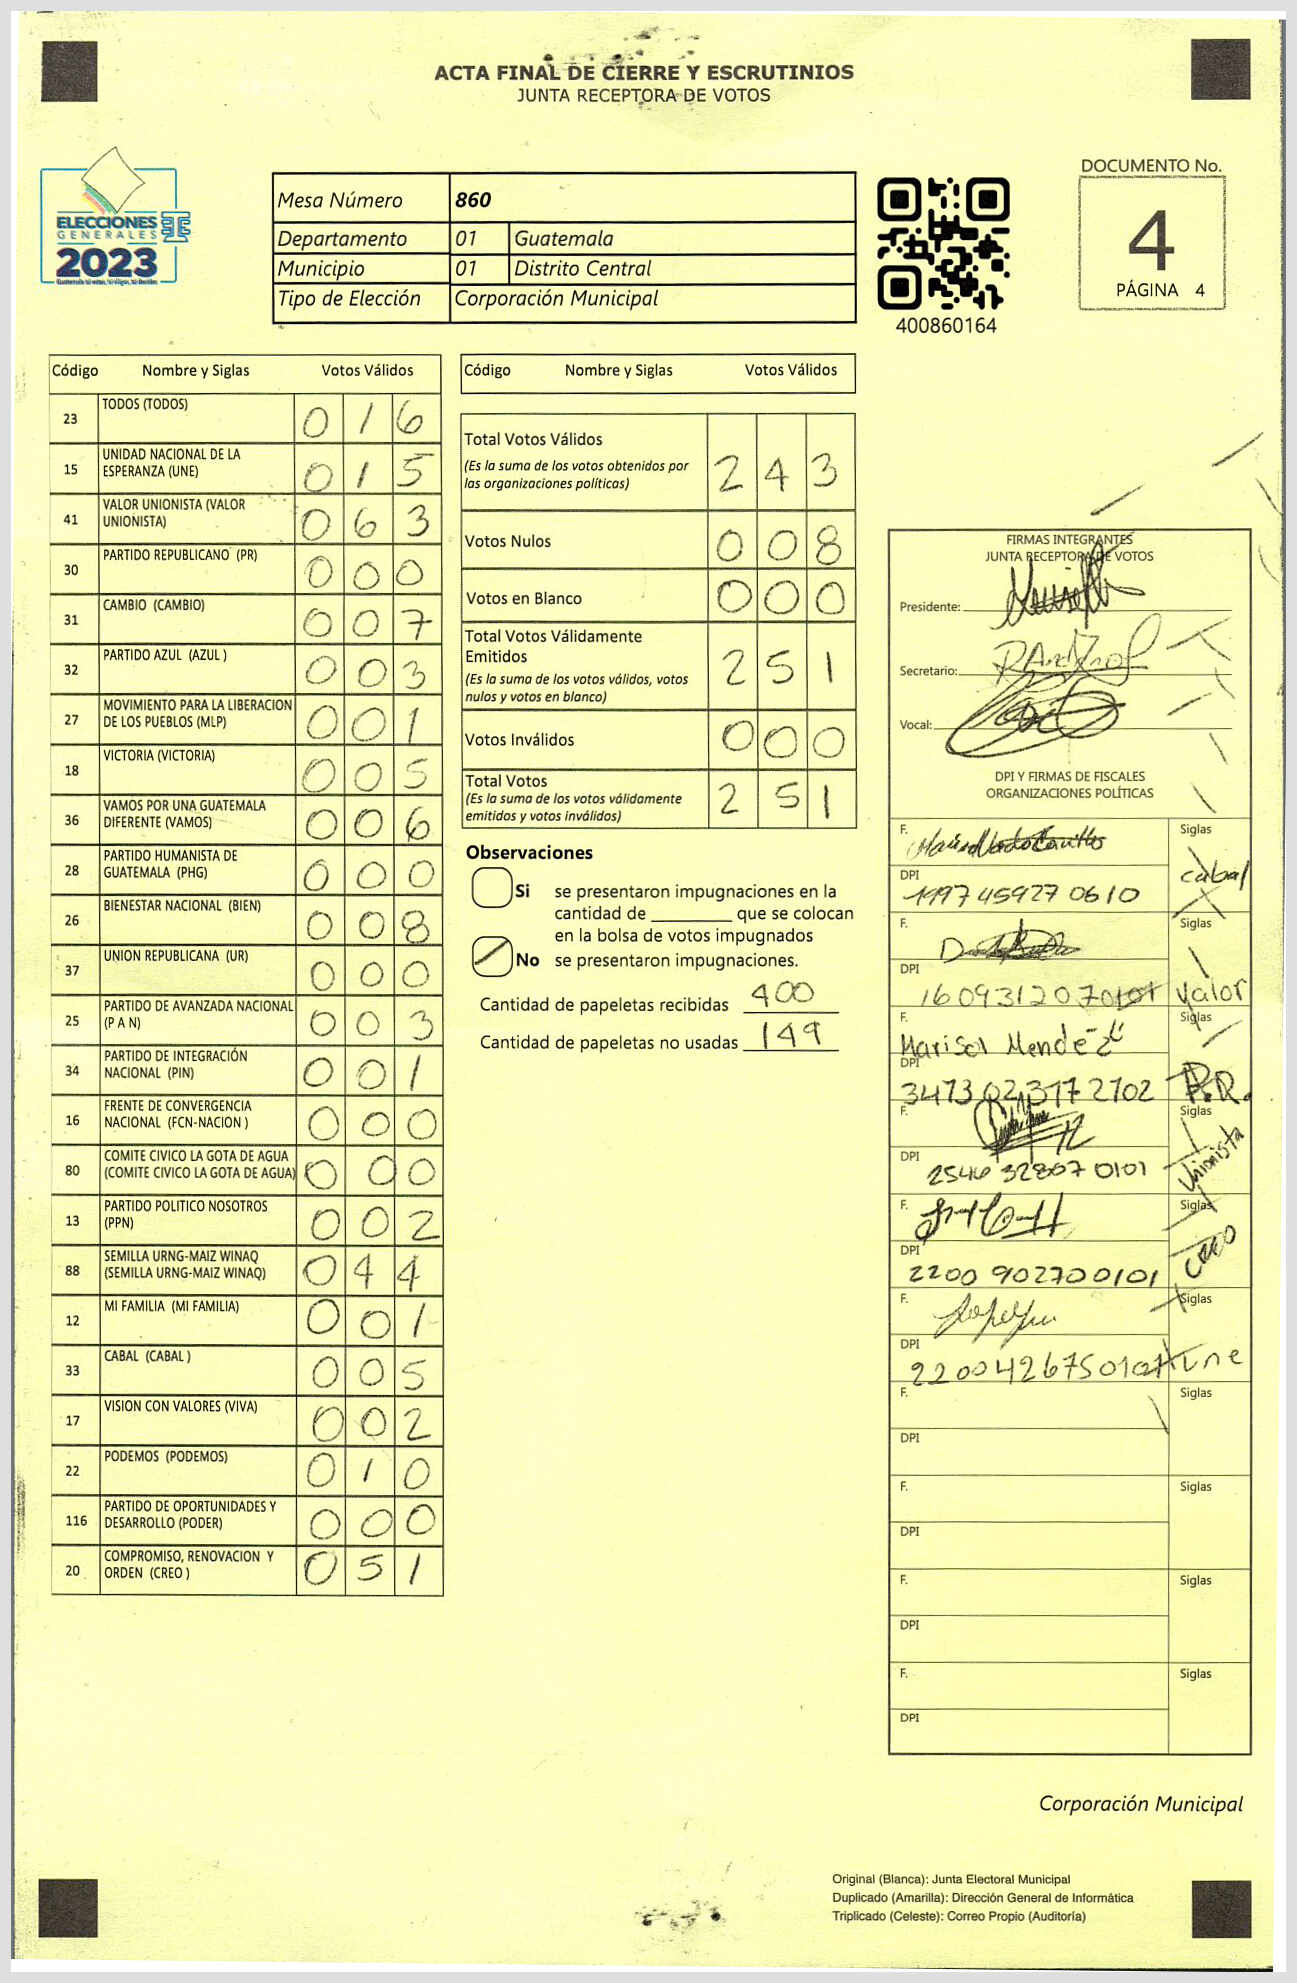 ACTA FINAL DE CIERRE Y ESCRUTINIOS
JUNTA RECEPTORA DE VOTOS
ELECCIONES
GENERALES
2023
Mesa Número 860
Departamento 01 Guatemala
Municipio 01 Distrito Central
Tipo de Elección Corporación Municipal
400860164
DOCUMENTO No.
4
PÁGINA 4
Código Nombre y Siglas Votos Válidos
23 TODOS (TODOS) 0 1 6
15 UNIDAD NACIONAL DE LA
ESPERANZA (UNE) 0 1 5
41 VALOR UNIONISTA (VALOR
UNIONISTA) 0 6 3
30 PARTIDO REPUBLICANO (PR) 0 0 0
31 CAMBIO (CAMBIO) 0 0 7
32 PARTIDO AZUL (AZUL ) 0 0 3
27 MOVIMIENTO PARA LA LIBERACION
DE LOS PUEBLOS (MLP) 0 0 1
18 VICTORIA (VICTORIA) 0 0 5
36 VAMOS POR UNA GUATEMALA
DIFERENTE (VAMOS) 0 0 6
28 PARTIDO HUMANISTA DE
GUATEMALA (PHG) 0 0 0
26 BIENESTAR NACIONAL (BIEN) 0 0 8
37 UNION REPUBLICANA (UR) 0 0 0
25 PARTIDO DE AVANZADA NACIONAL
(P A N) 0 0 3
34 PARTIDO DE INTEGRACIÓN
NACIONAL (PIN) 0 0 1
16 FRENTE DE CONVERGENCIA
NACIONAL (FCN-NACION ) 0 0 0
80 COMITE CIVICO LA GOTA DE AGUA
(COMITE CIVICO LA GOTA DE AGUA) 0 0 0
13 PARTIDO POLITICO NOSOTROS
(PPN) 0 0 2
88 SEMILLA URNG-MAIZ WINAQ
(SEMILLA URNG-MAIZ WINAQ) 0 4 4
12 MI FAMILIA (MI FAMILIA) 0 0 1
33 CABAL (CABAL ) 0 0 5
17 VISION CON VALORES (VIVA) 0 0 2
22 PODEMOS (PODEMOS) 0 1 0
116 PARTIDO DE OPORTUNIDADES Y
DESARROLLO (PODER) 0 0 0
20 COMPROMISO, RENOVACION Y
ORDEN (CREO ) 0 5 1
Código Nombre y Siglas Votos Válidos
Total Votos Válidos
(Es la suma de los votos obtenidos por
las organizaciones políticas) 2 4 3
Votos Nulos 0 0 8
Votos en Blanco 0 0 0
Total Votos Válidamente
Emitidos
(Es la suma de los votos válidos, votos
nulos y votos en blanco) 2 5 1
Votos Inválidos 0 0 0
Total Votos
(Es la suma de los votos válidamente
emitidos y votos inválidos) 2 5 1
Observaciones
Si se presentaron impugnaciones en la
cantidad de ________ que se colocan
en la bolsa de votos impugnados
No se presentaron impugnaciones.
Cantidad de papeletas recibidas 400
Cantidad de papeletas no usadas 149
FIRMAS INTEGRANTES
JUNTA RECEPTORA DE VOTOS
Presidente:
Secretario:
Vocal:
DPI Y FIRMAS DE FISCALES
ORGANIZACIONES POLÍTICAS
F. Siglas
DPI cabal
1997 45927 0610
F. Siglas
DPI
1609312070101 Valor
F. Siglas
Marisol Mendéz
DPI
3473 02377 2702 P.R.
F. Siglas
DPI Unionista
2546 32807 0101
F. Siglas
DPI CREO
2200 90270 0101
F. Siglas
DPI
2200426750101 Une
F. Siglas
DPI
F. Siglas
DPI
F. Siglas
DPI
F. Siglas
DPI
Corporación Municipal
Original (Blanca): Junta Electoral Municipal
Duplicado (Amarilla): Dirección General de Informática
Triplicado (Celeste): Correo Propio (Auditoría)